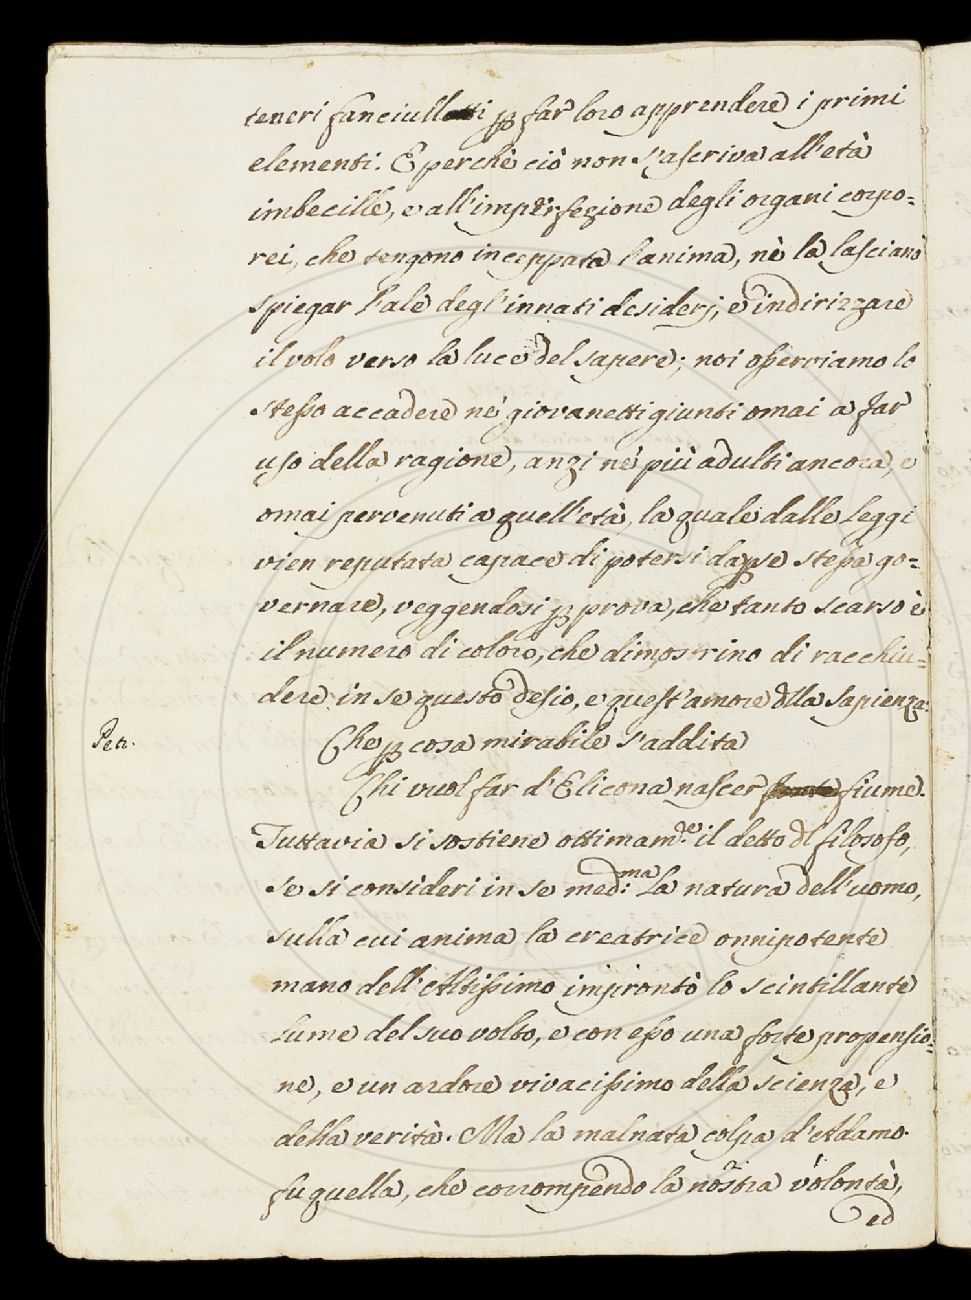 teneri fanciulletti p far loro apprendere i primi
elementi. E perchè ciò non s'ascriva all'età
imbecille, e all'imperfezione degli organi corpo=
rei, che tengono inceppata l'anima, nè la lasciano
spiegar l'ale degl'innati desiderj, e indirizzare
il volo verso la luce del sapere; noi osserviamo lo
stesso accadere ne' giovanetti giunti omai a far
uso della ragione, anzi ne' più adulti ancora, e
omai pervenuti a quell'età, la quale dalle Leggi
vien reputata capace di potersi da p se stessa go=
vernare, veggendosi p prova, che tanto scarso è
il numero di coloro, che dimostrino di racchiu=
dere in se questo desio, e quest'amore dlla Sapienza.
Petr.
Che p cosa mirabile s'addita
Chi vuol far d'Elicona nascer fiume.
Tuttavia si sostiene ottimamde. il detto dl filosofo,
se si consideri in se medma: La natura dell'uomo,
sulla cui anima la creatrice onnipotente
mano dell'Altissimo improntò lo scintillante
Lume del suo volto, e con esso una forte propensio=
ne, e un ardore vivacissimo della scienza, e
della verità. Ma la malnata colpa d'Adamo
fu quella, che corrompendo la nostra volontà,
ed